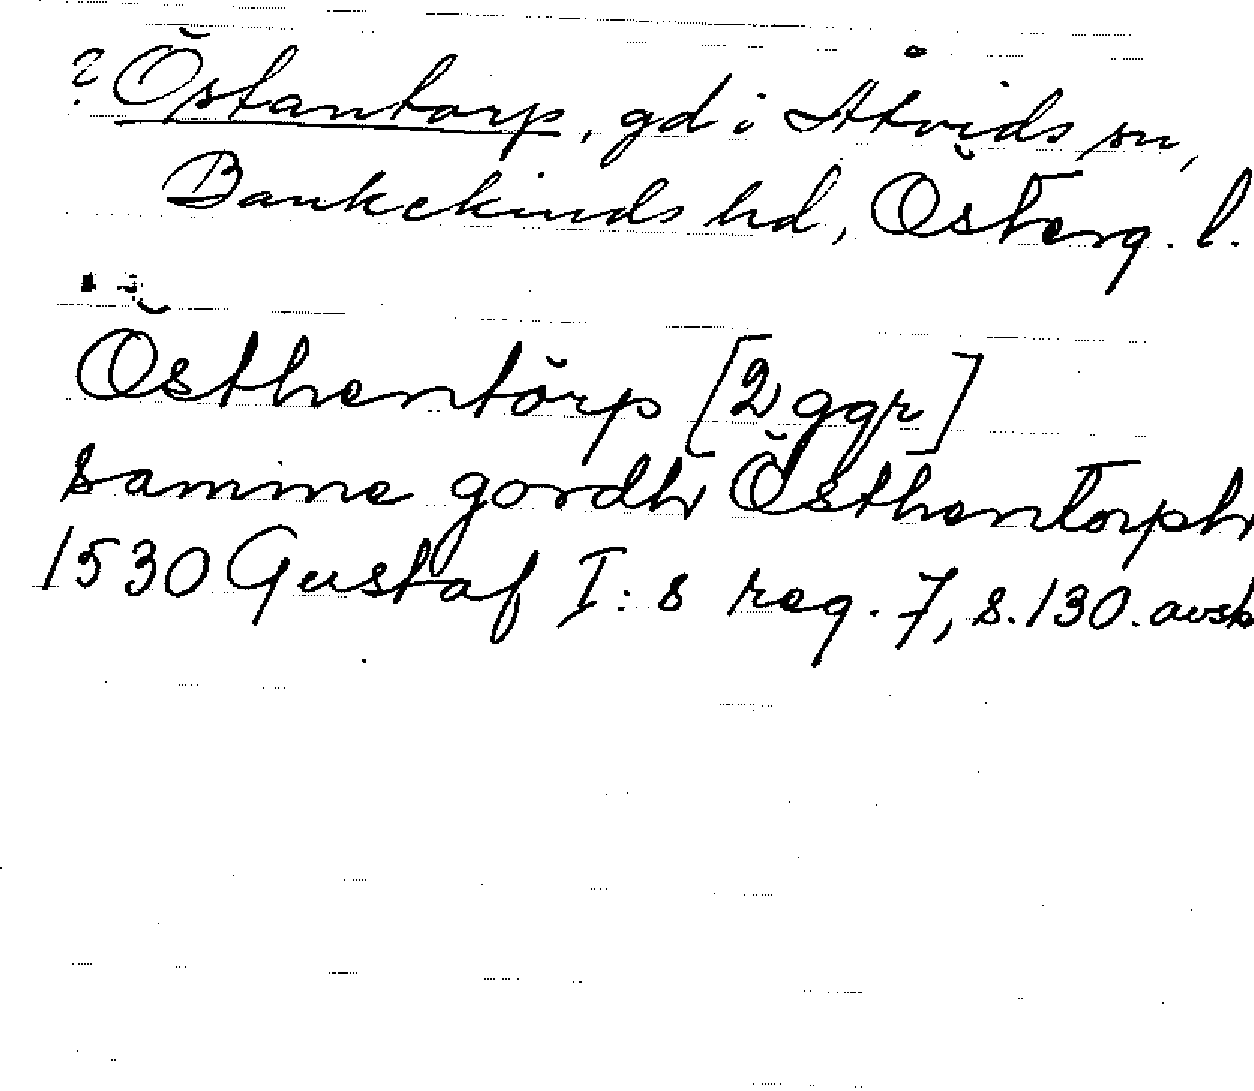 ? Östantorp, gd i Åtvids sn,
Bankekinds hd, Österg. l.
Östhentörp [2 ggr]
samme gordh Östhentorph
1530 Gustaf I:s reg. 7, s. 130. avsk